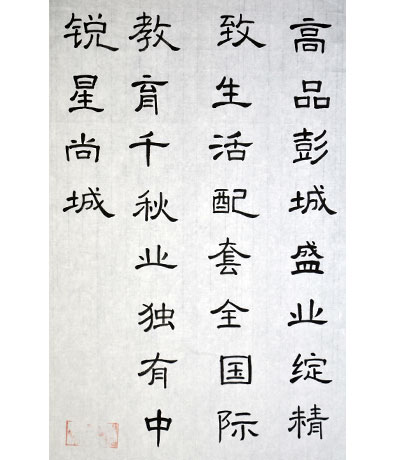 高品彭城盛业绽精
致生活配套全国际
教育千秋业独有中
锐星尚城